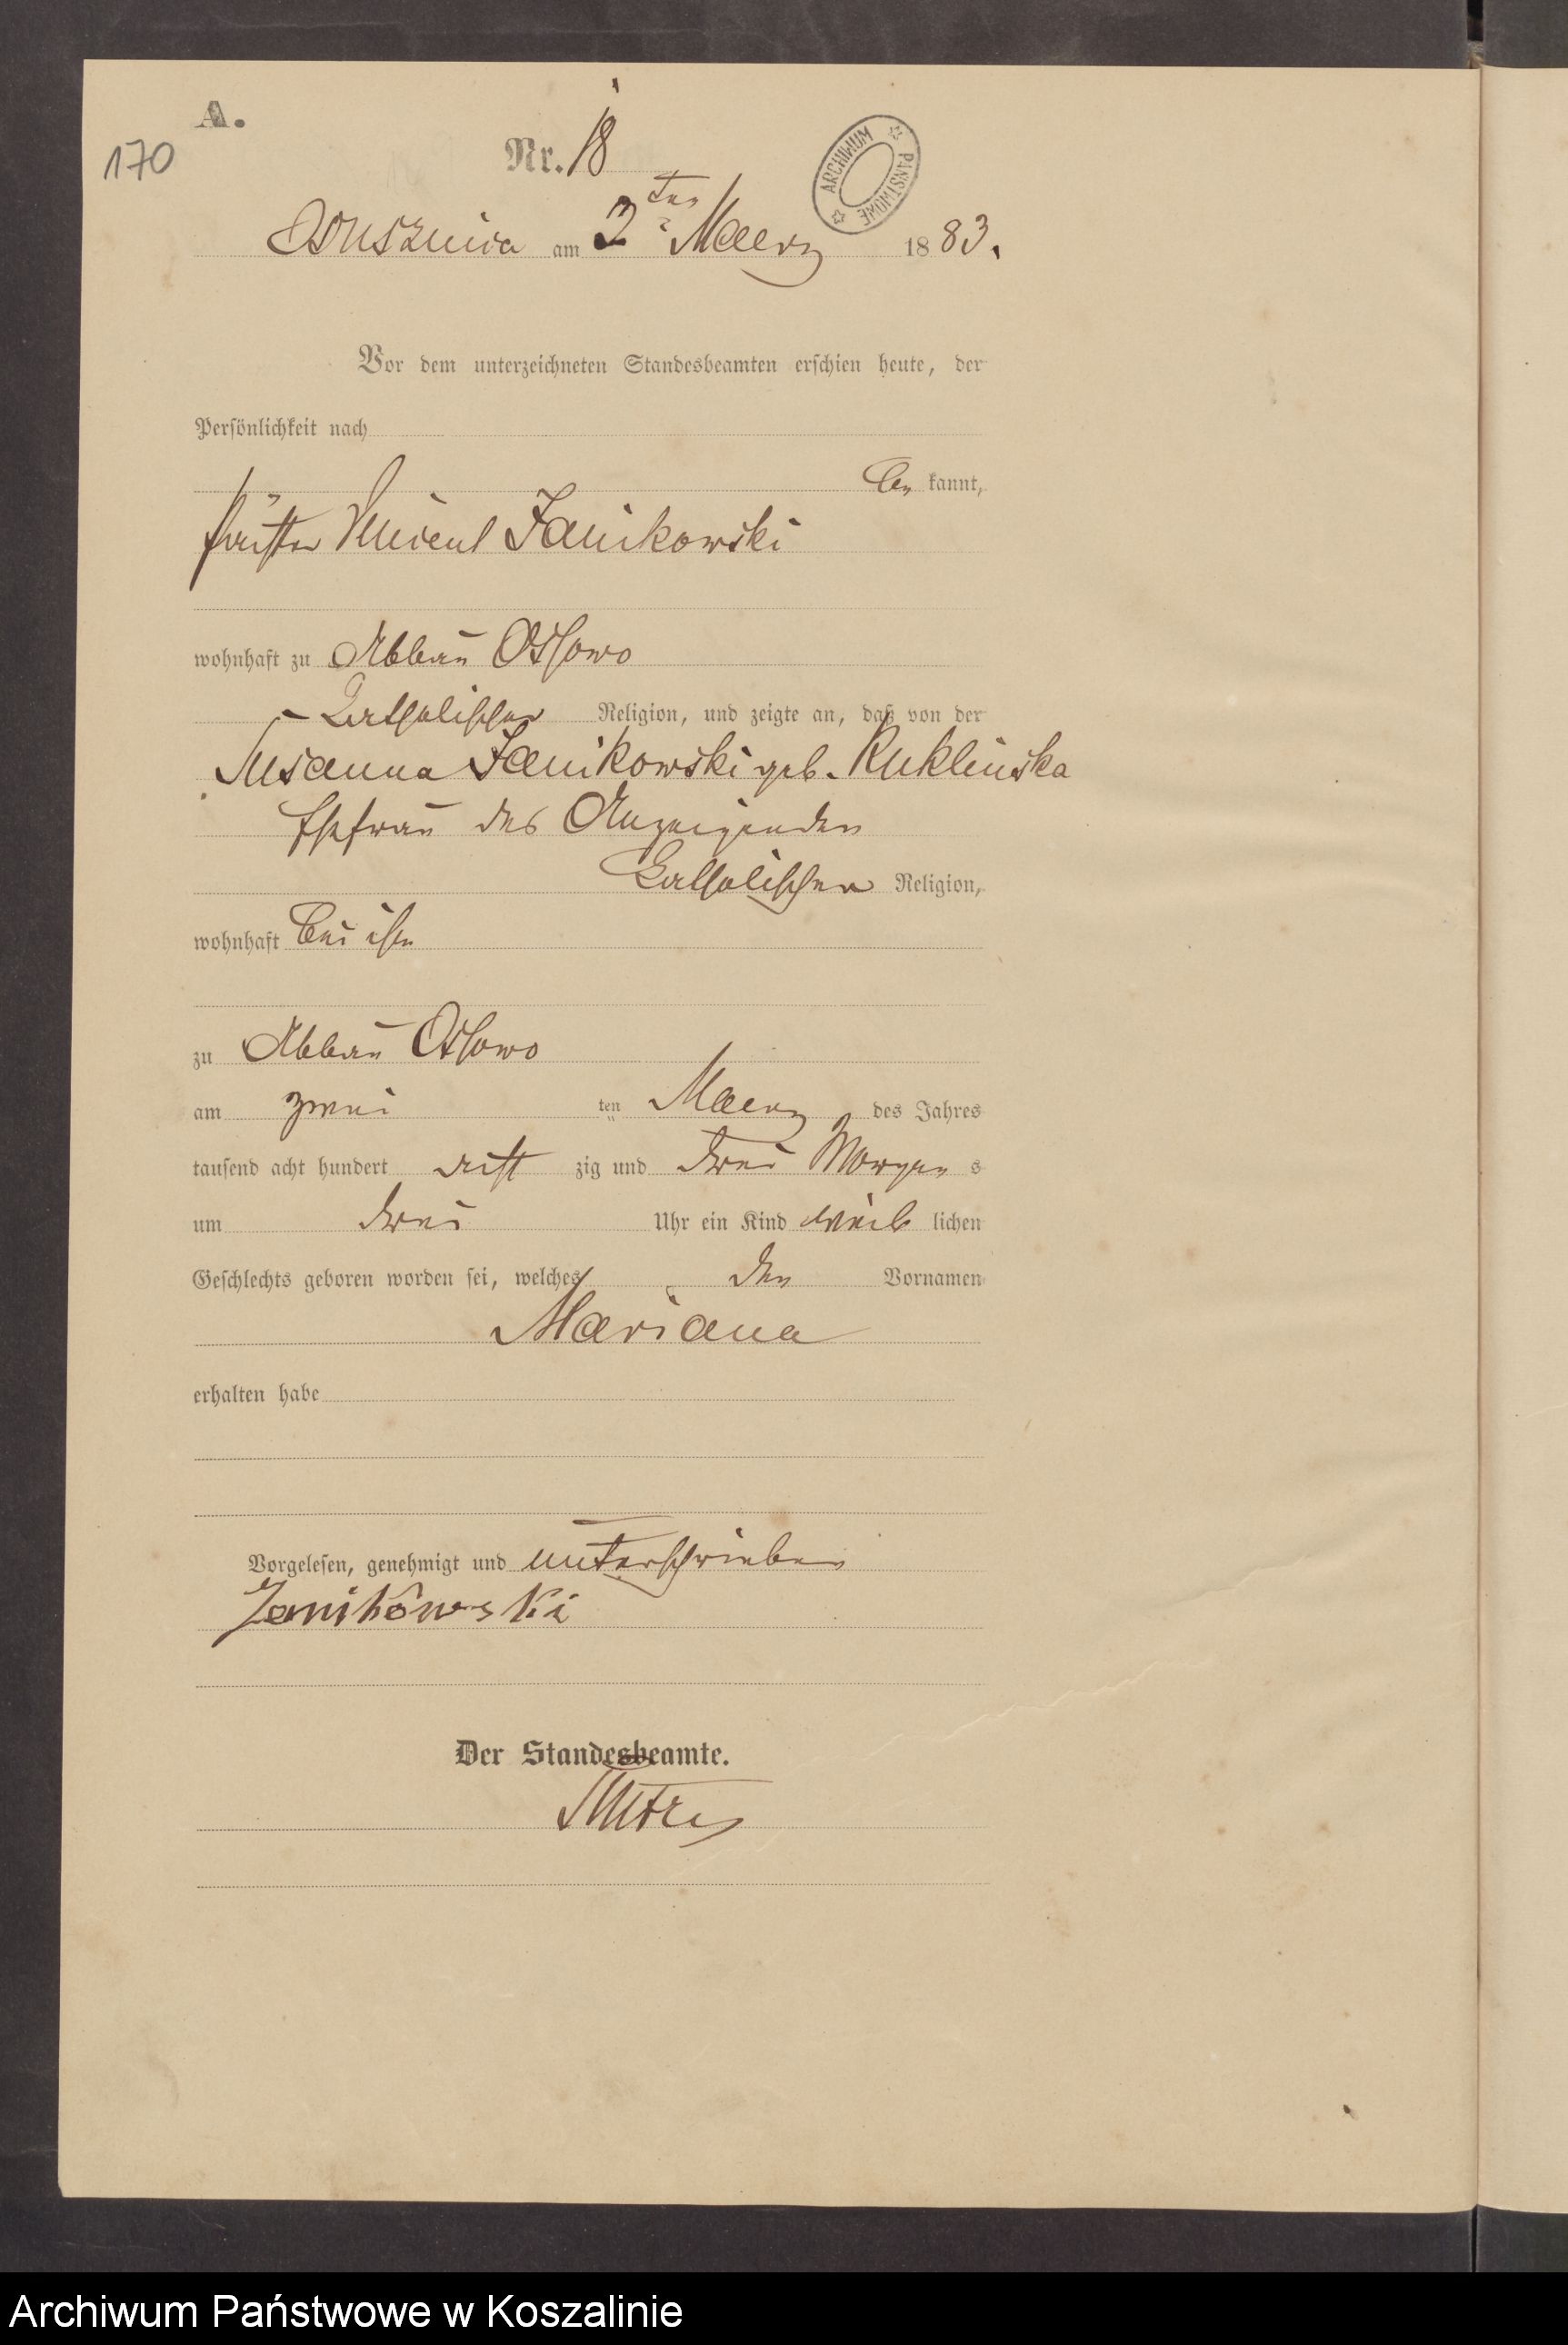 A.
170
Nr. 18
ARCHIWUM PAŃSTWOWE
am 2ten Maerz 1883.
Vor dem unterzeichneten Standesbeamten erschien heute, der
Persönlichkeit nach
be kannt,
Vincent Janikowski
wohnhaft zu Abbau Ossowo
katholischer Religion, und zeigte an, daß von der
Susanna Janikowski geb. Kuklinska
Ehefrau des Anzeigenden
katholischer Religion,
wohnhaft bei ihm
zu Abbau Ossowo
am zwei ten Maerz des Jahres
tausend acht hundert acht zig und drei Morgen s
um drei Uhr ein Kind weib lichen
Geschlechts geboren worden sei, welches den Vornamen
Mariana
erhalten habe
Vorgelesen, genehmigt und unterschrieben
Janikowski
Der Standesbeamte.
Archiwum Państwowe w Koszalinie